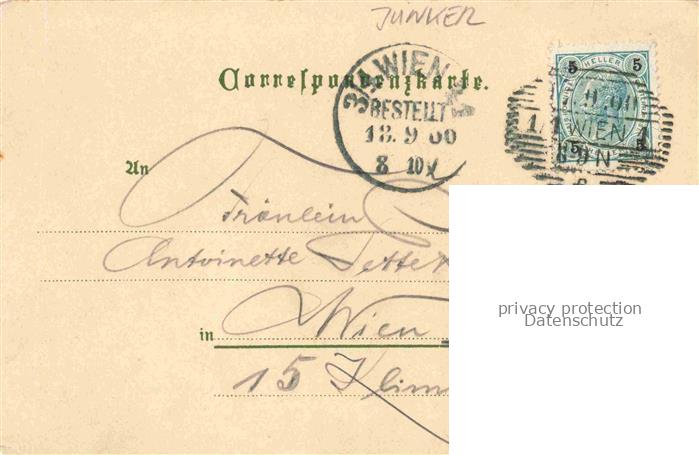 JUNKER
Correspondenzkarte.
3/1 WIEN
BESTELLT
18.9 00
8 10
5 HELLER 5
9.00
1/1 WIEN
8-9 N
5 5
An
Fräulein
Antoinette
in Wien
15
privacy protection
Datenschutz